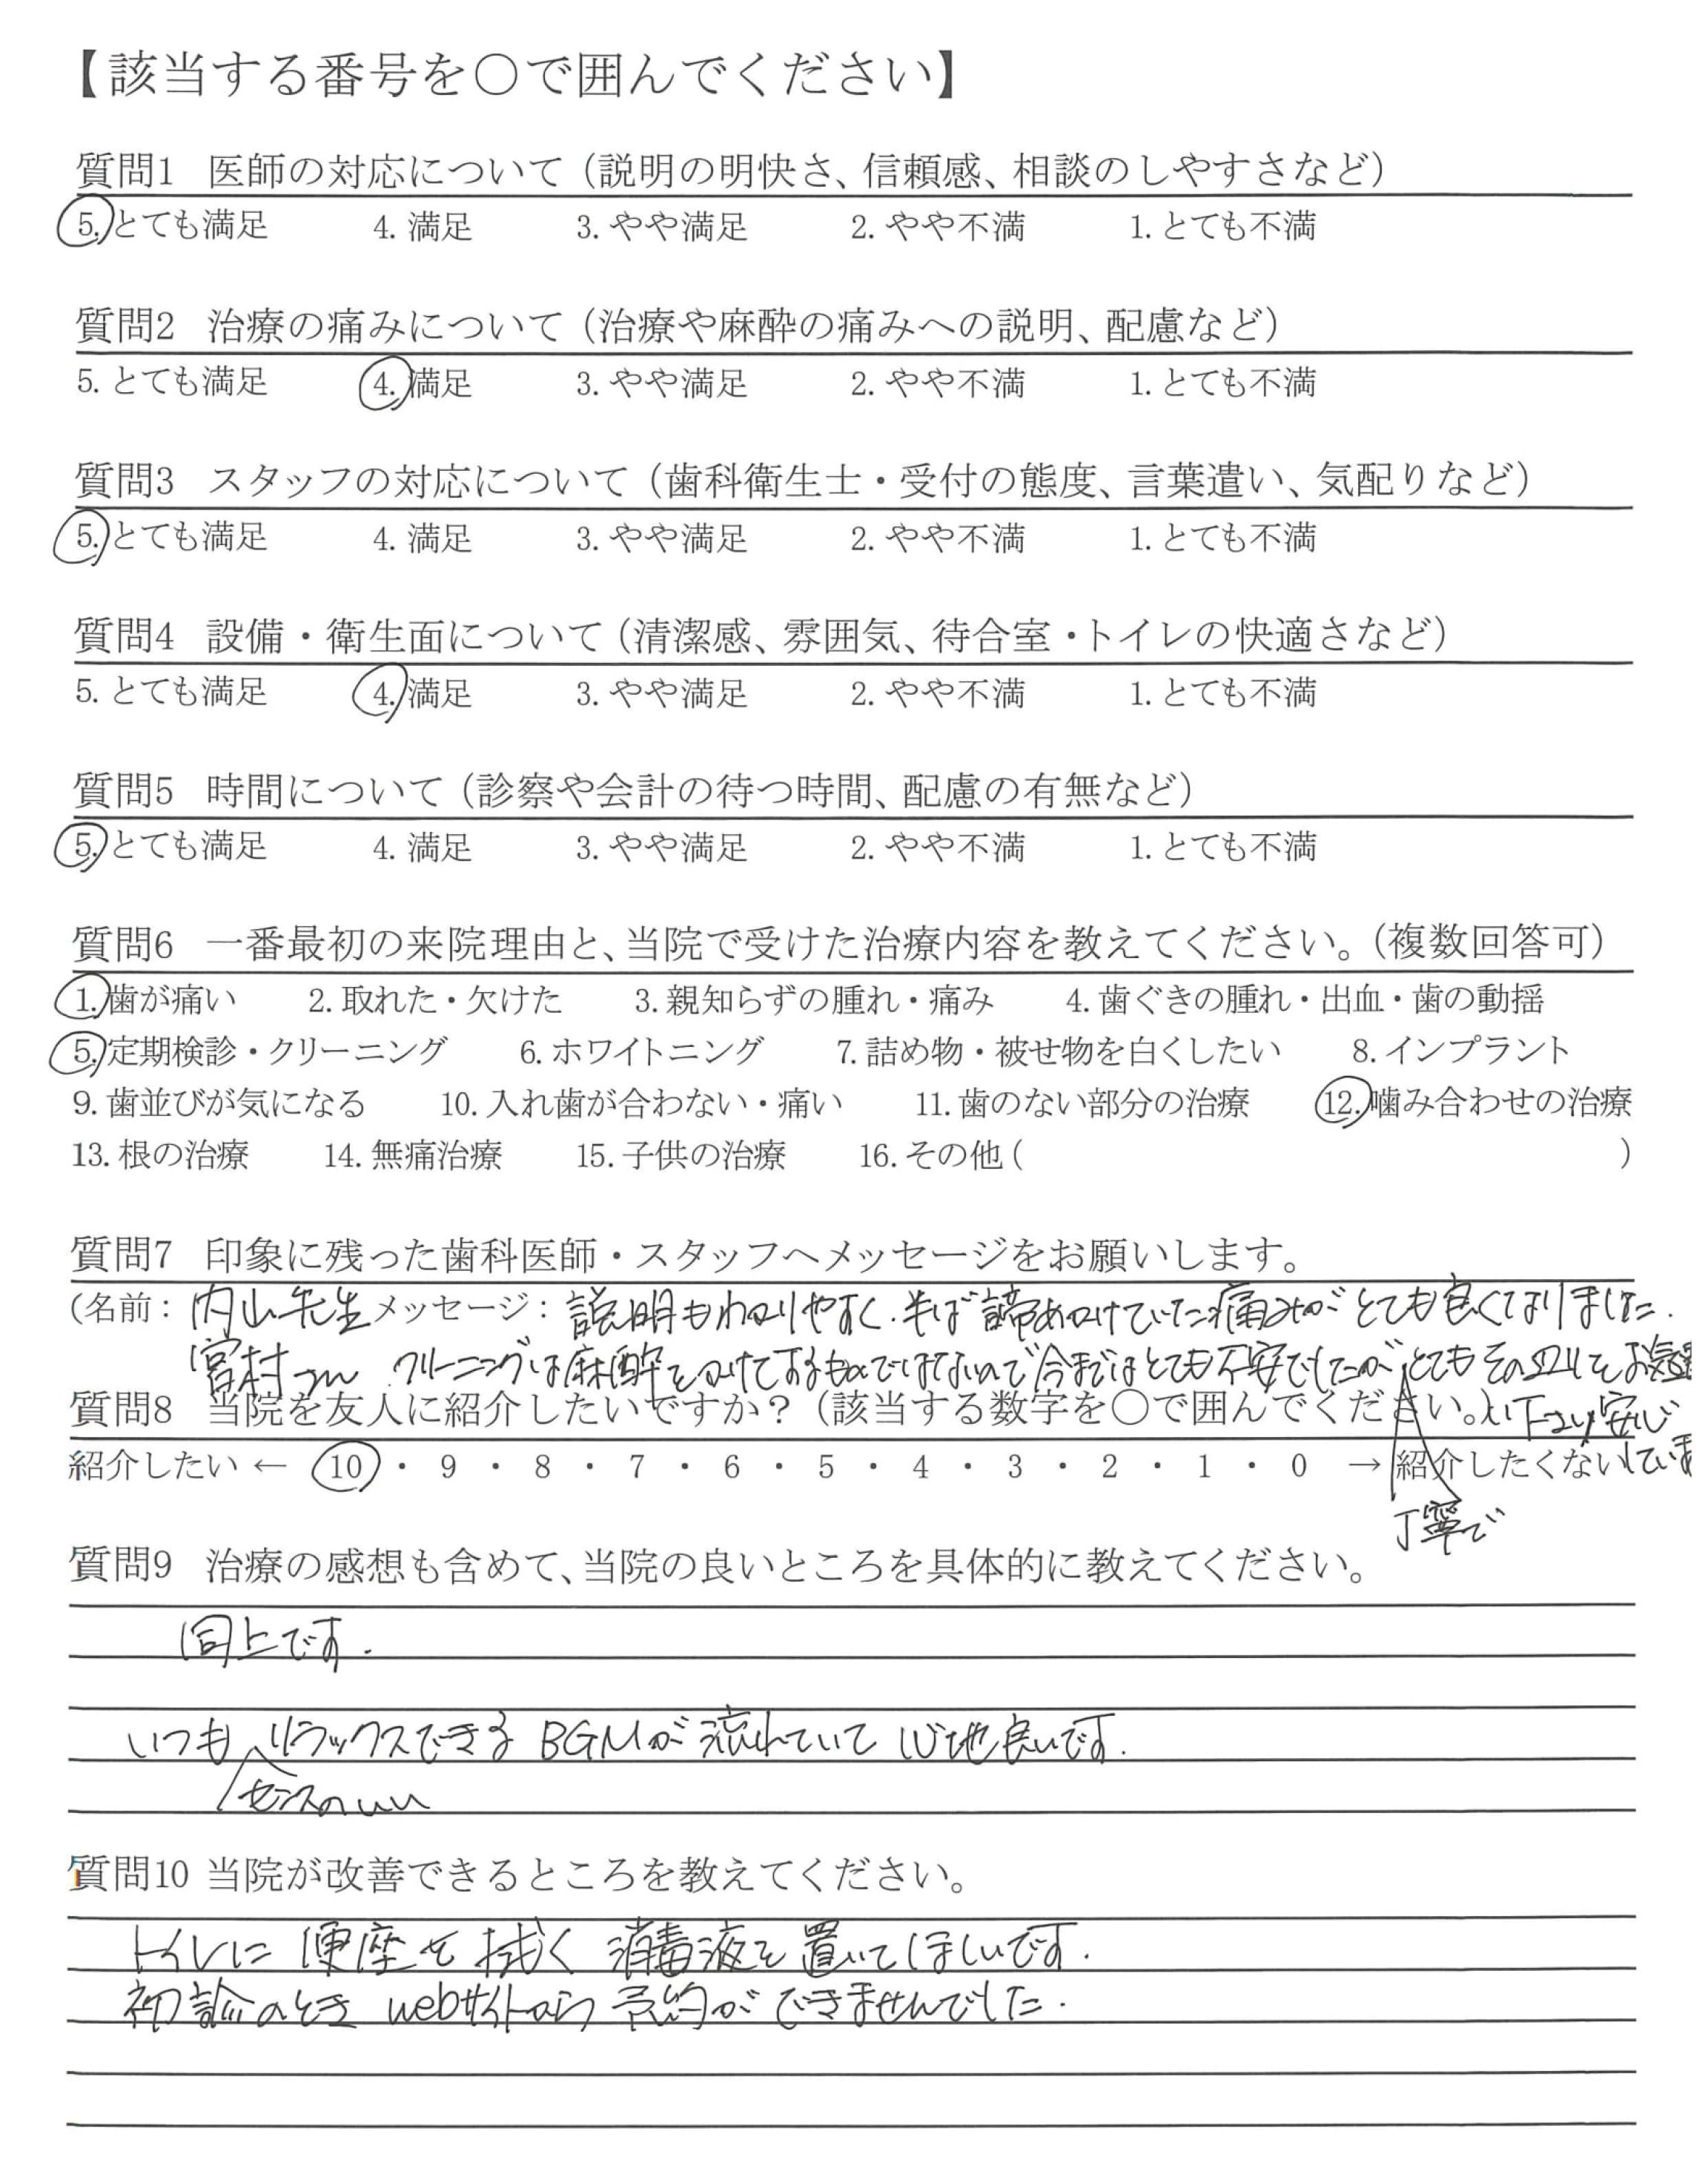 【該当する番号を○で囲んでください】
質問1 医師の対応について（説明の明快さ、信頼感、相談のしやすさなど）
5. とても満足 4. 満足 3. やや満足 2. やや不満 1. とても不満
質問2 治療の痛みについて（治療や麻酔の痛みへの説明、配慮など）
5. とても満足 4. 満足 3. やや満足 2. やや不満 1. とても不満
質問3 スタッフの対応について（歯科衛生士・受付の態度、言葉遣い、気配りなど）
5. とても満足 4. 満足 3. やや満足 2. やや不満 1. とても不満
質問4 設備・衛生面について（清潔感、雰囲気、待合室・トイレの快適さなど）
5. とても満足 4. 満足 3. やや満足 2. やや不満 1. とても不満
質問5 時間について（診察や会計の待つ時間、配慮の有無など）
5. とても満足 4. 満足 3. やや満足 2. やや不満 1. とても不満
質問6 一番最初の来院理由と、当院で受けた治療内容を教えてください。（複数回答可）
1. 歯が痛い 2. 取れた・欠けた 3. 親知らずの腫れ・痛み 4. 歯ぐきの腫れ・出血・歯の動揺
5. 定期検診・クリーニング 6. ホワイトニング 7. 詰め物・被せ物を白くしたい 8. インプラント
9. 歯並びが気になる 10. 入れ歯が合わない・痛い 11. 歯のない部分の治療 12. 噛み合わせの治療
13. 根の治療 14. 無痛治療 15. 子供の治療 16. その他（ ）
質問7 印象に残った歯科医師・スタッフへメッセージをお願いします。
（名前： 内山先生 メッセージ： 説明もわかりやすく、半ば諦めかけていた痛みがとても良くなりました.
宮村さん クリーニングは麻酔をかけてするものではないので今まではとても不安でしたが とても
質問8 当院を友人に紹介したいですか？（該当する数字を○で囲んでください。） い下さり安心
紹介したい ← 10 ・ 9 ・ 8 ・ 7 ・ 6 ・ 5 ・ 4 ・ 3 ・ 2 ・ 1 ・ 0 → 紹介したくない していま
丁寧で
質問9 治療の感想も含めて、当院の良いところを具体的に教えてください。
同上です.
いつも リラックスできる BGMが流れていて 心地良いです.
センスのいい
質問10 当院が改善できるところを教えてください。
トイレに 便座を 拭く 消毒液を 置いてほしいです.
初診のとき webサイトから 予約ができませんでした.